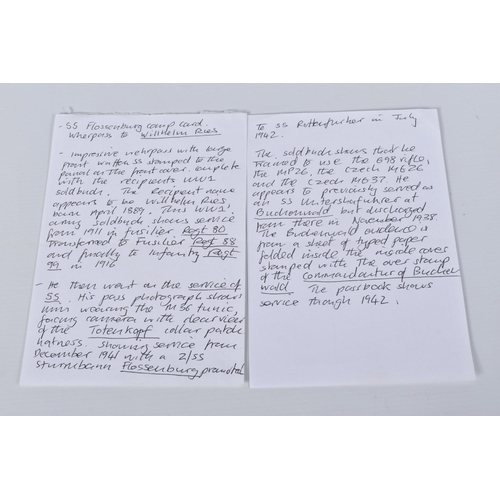 - SS Flossenburg camp card.
Wherpass to Willhelm Ries.
- Impressive wehrpass with large
front waffen SS stamped to the
period on the front cover. Complete
with the recipients WW1
soldbuch. The Recipient name
appears to be Willhelm Ries,
born April 1889. This WW1,
army soldbuch shows service
from 1911 in fusilier Regt 80
transferred to Fusilier Regt 88
and finally to Infantry Regt
99 in 1918
- He then went on the service of
SS. His pass photograph shows
him wearing the M36 tunic,
facing camera with clear view
of the Totenkopf collar patch
. Showing service from
December 1941 with a 2/SS
sturmbann Flossenburg promoted
to SS Rottenfurher in July
1942.
The soldbuch shows that he
trained to use the G98 rifle,
the MP26, the Czech MG26
and the Czech MG37. He
appears to previously served as
an SS Untersharfuhrer at
Buchenwald but discharged
from there in November 1938.
The Buchenwald evidence is
from a sheet of typed paper
folded inside the inside cover
stamped with the over stamp
of the Commandantur of Buchen
wald. The passbook shows
service through 1942.